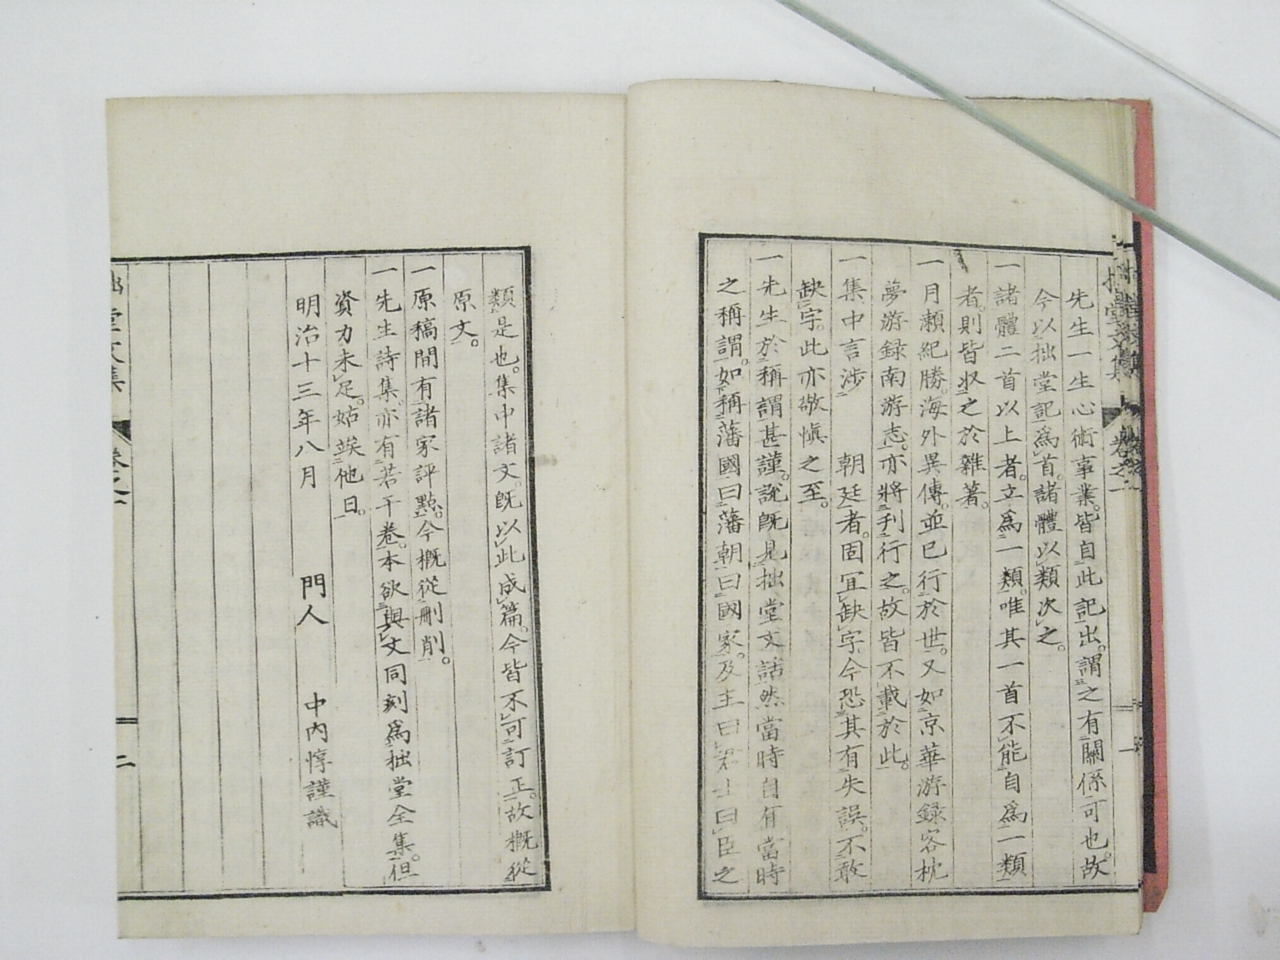 先生一生心術事業。皆自此記出。謂之有關係可也。故
今以拙堂記爲首。諸體以類次之。
一諸體二首以上者。立爲一類。唯其一首不能自爲一類
者。則皆收之於雜著。
一月瀨紀勝。海外異傳。並已行於世。又如京華游録。客枕
夢游録。南游志。亦將刊行之。故皆不載於此。
一集中言涉 朝廷者。固宜缺字。今恐其有失誤。不敢
缺字。此亦敬愼之至。
一先生於稱謂甚謹。說既見拙堂文話。然當時自有當時
之稱謂。如稱藩國曰藩朝。曰國家。及主曰君。士曰臣之
類是也。集中諸文。既以此成篇。今皆不可訂正。故概從
原文。
一原稿間有諸家評點。今概從刪削。
一先生詩集。亦有若干卷。本欲與文同刻爲拙堂全集。但
資力未足。姑竢他日。
明治十三年八月 門人 中內惇謹識
拙堂文集 卷之一 二